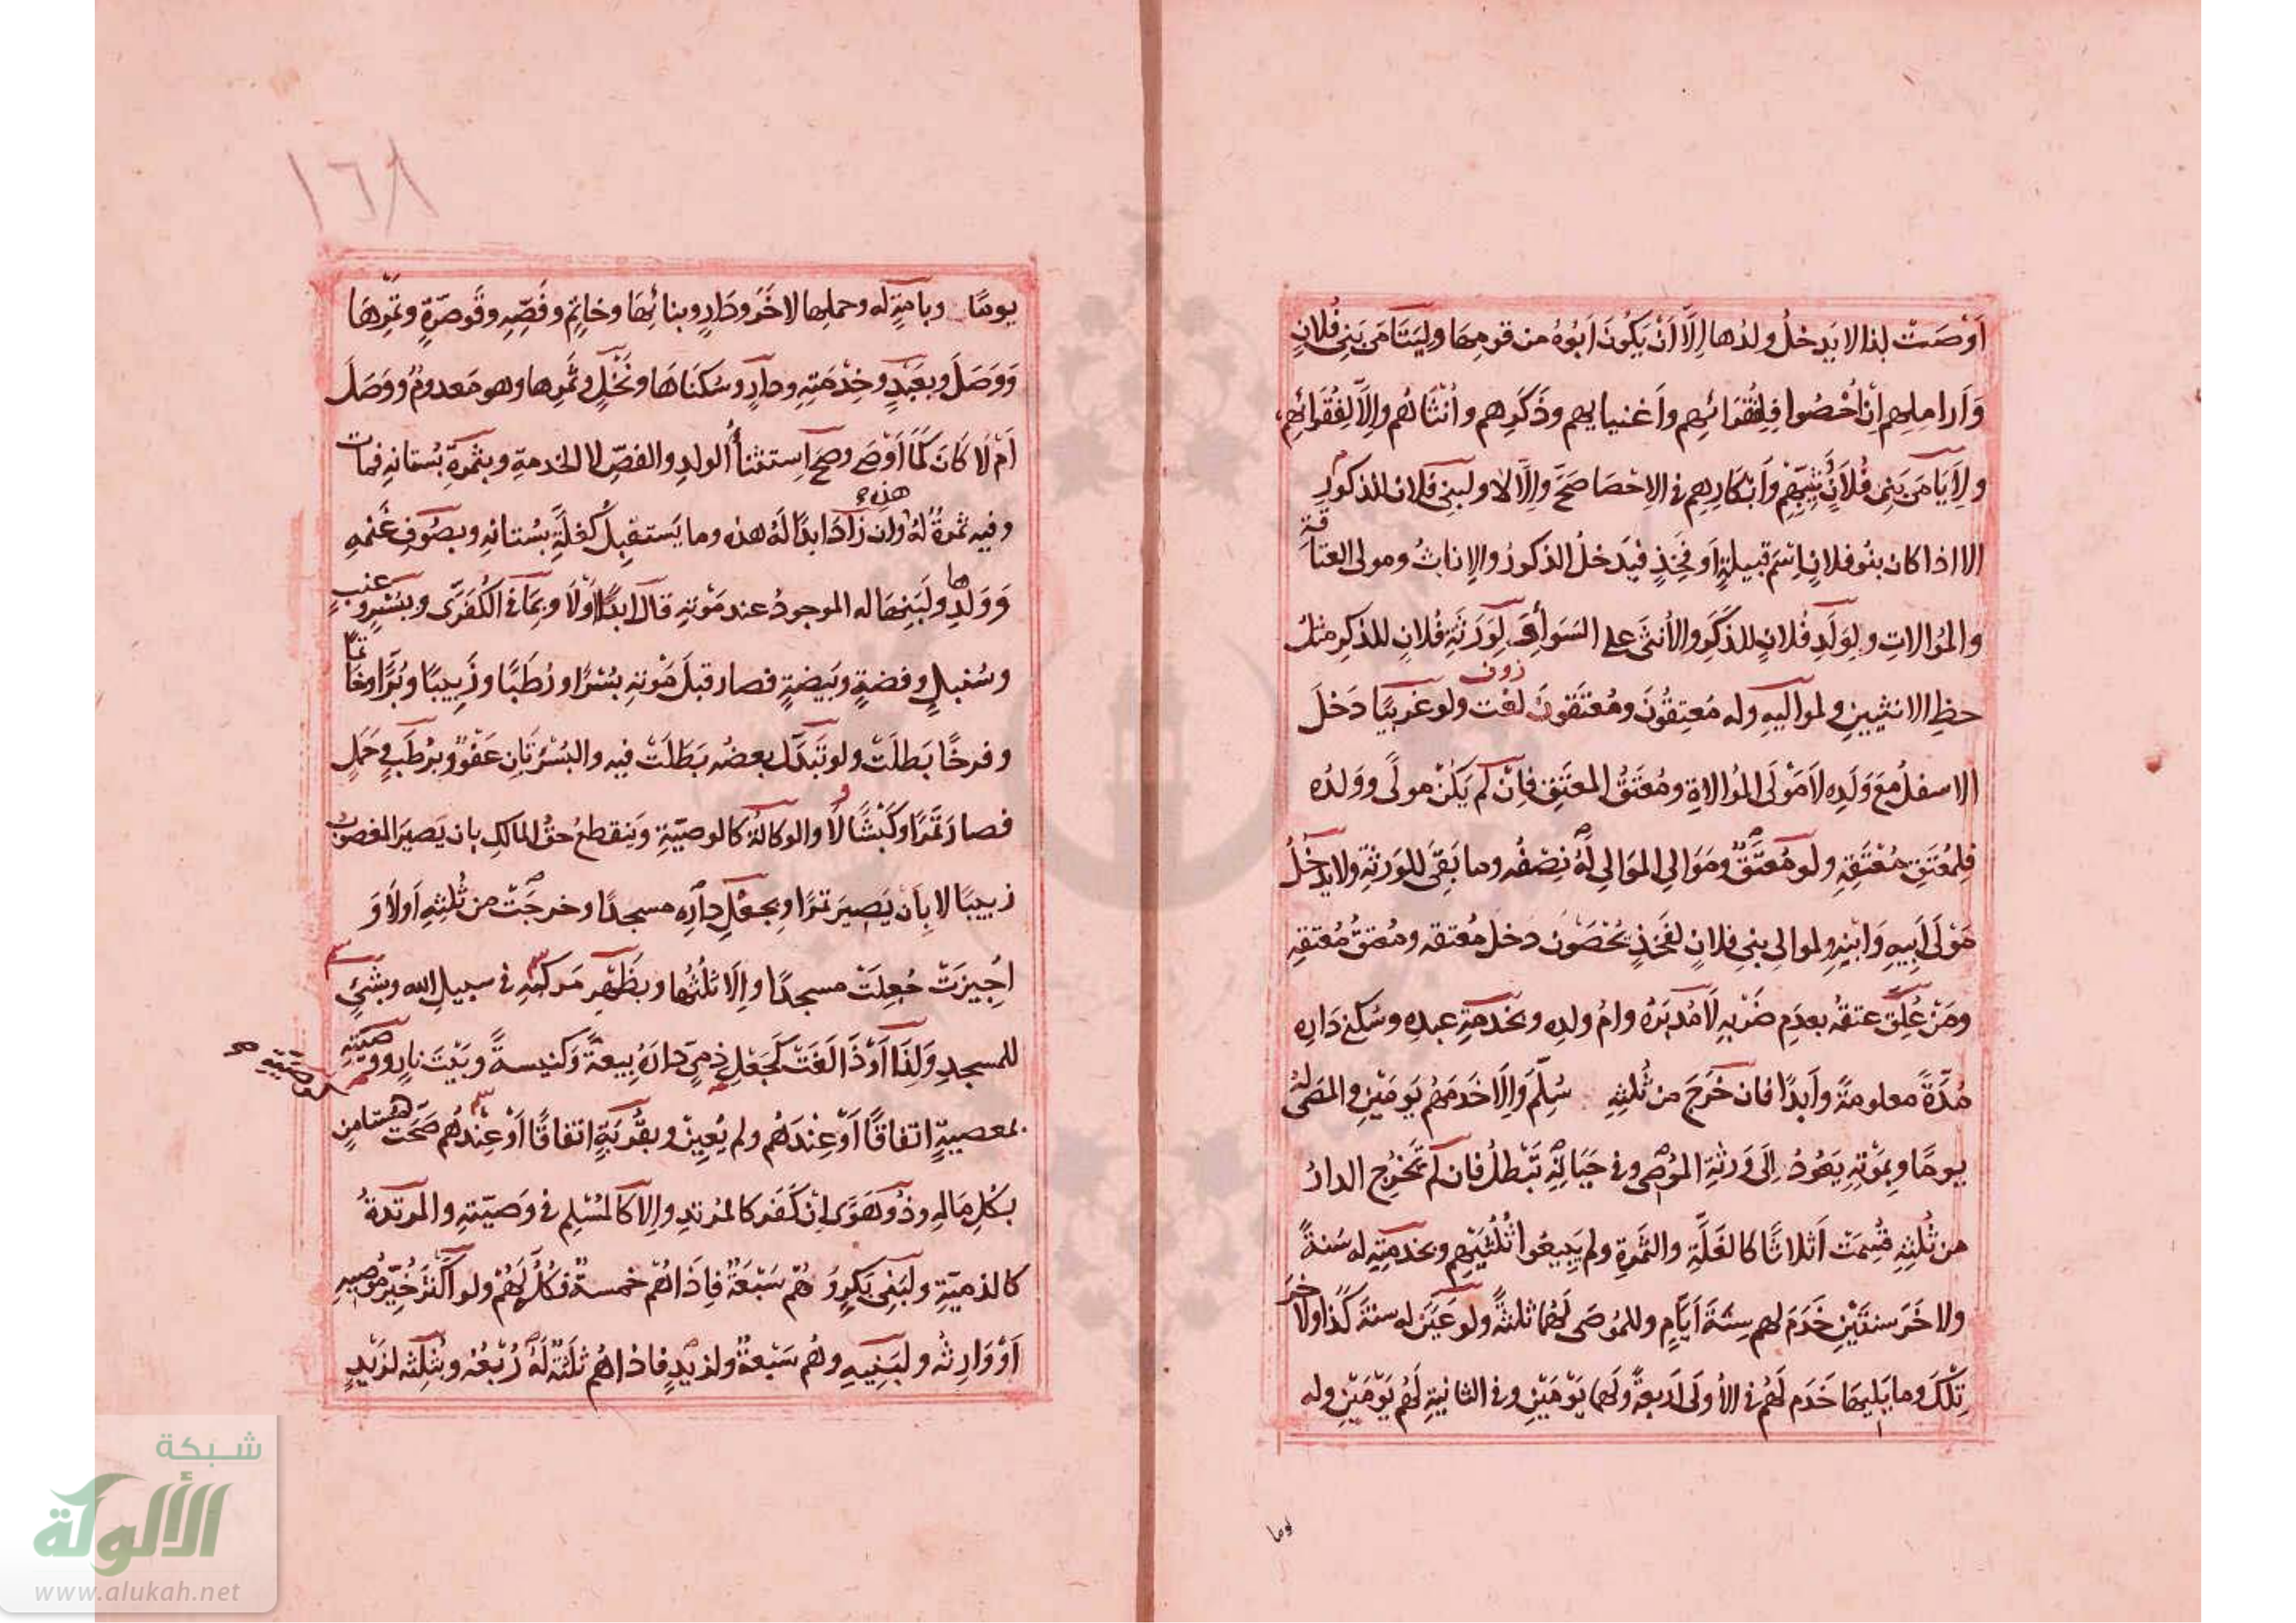 اَوْصَتْ لذا لا يَدخلُ ولدُها اِلَّا اَنْ يَكُونَ اَبُوهُ من قومِهَا وليَتَامَى بَنِى فُلانٍ
وَاَرامِلِهم اِنْ اُحْصُوا فِلِفُقَرَائِهِم واَغنيايهم وذَكَرِهم واُنْثَاهُم واِلَّا لِفُقَرائِهِم
ولِاَيَامَى بَنِى فُلَانٍ ثَيِّبِهِم وَاَبْكَارِهِم فى الاِحْصَا صَحَّ واِلَّا لا ولبنِى فلان للذكورِ
الا اذا كان بنُو فلانٍ اِسْمَ قبيلةٍ اَو فَخِذٍ فيَدخلُ الذكورُ والاِناثُ ومولى العتاقة
والمُوالاتِ ولِوَلَدِ فُلانٍ للذكَرِ والأنثى على السَوَاءِ لِوَرَثَةِ فُلانٍ للذكرِ مثلُ
حظِ الانثيينِ ولمواليهِ وله مُعتِقُونَ ومُعْتَقُونَ لغت ولو غريبًا دَخَلَ
الاسفلُ مَعَ وَلَدِه لَا مَوْلَى المُوالاةِ ومُعْتَقُ المعتَقِ فاِنْ لم يَكُنْ مولًى وولدُه
فلِمُعْتَقِ مُعْتَقِهِ ولو مُعْتَقٌ ومَوَالِى المَوالِى لَهُ نِصْفُه وما بَقِىَ للوَرَثةِ ولا يدخلُ
مَوْلَى اَبِيهِ وَابْنِهِ ولموالِى بنِى فلانٍ لفَخِذٍ يُحْصَوْن دخل مُعتقه ومُعتقُ مُعْتَقِهِ
ومَنْ عُلِّقَ عتقُه بعدَمِ ضَرْبِه لَا مُدَبَّرُهُ وامُ ولدِه وبخدمةِ عبدِه وسُكنى دَارِه
مُدَّةً معلومةً وأبدًا فان خَرَجَ من ثُلثِهِ سُلِّمَ وَاِلَّا خَدَمَهُم يَومَيْنِ والموصى لهُ
يومًا وبِمَوْتِهِ يَعُودُ اِلَى وَرَثَةِ المُوصِى وفى حَيَاتِهِ تَبْطلُ فان لم تَخرُجِ الدارُ
من ثُلثِهِ قُسِمَتْ اَثلاثًا كالغَلَّةِ والثَمَرةِ ولم يَبِيعُوا ثُلُثَيْهِم وبخدمتِهِ له سَنةً
ولاخَرَ سنتَيْنِ خَدَمَ لهم سِتَّةَ اَيَّامٍ وللمُوصَى لَهُمَا ثلثةً ولو عَيَّن له سنةَ كذا ولاخرَ
تِلْكَ وما يَليهَا خَدَم لَهُم فى الأولَى اَربعةً ولَهما يَوْمَيْنِ وفى الثانيةِ لَهُم يَوْمَيْنِ وله
يوما
١٦٨
يومًا وبامَةٍ له وحملِها لاخَرَ ودَارٍ وبنائِهَا وخاتِمٍ وفَصِّهِ وقَوصَرّةٍ وتَمْرِهَا
وَوَصَلَ وبعَبْدٍ وخِدْمَتِهِ ودارٍ وسُكنَاهَا ونَخْلٍ وثَمَرِها وهو مَعدومٌ ووَصَلَ
اَمْ لَا كَانَ كَمَا اَوْصَى وصحَ اَستثناءُ الولدِ والفصِّ لا الخدمةِ وبثمرةِ بُستانِهِ فمات
وفيه ثمرةٌ لهُ هذِه وان زادَ ابدًا لَهُ هذِه وما يَستقبِلُ كغلَّةِ بُستانِهِ وبصُوفِ غَنَمِهِ
وَوَلَدِها ولَبَنِهَا له الموجودُ عند مَوْتِهِ قال ابدًا اَوْ لَا وبِمَا فى الكُفَرَّى وبِبُسْرٍ وعنبٍ
وسُنبلٍ وفضةٍ وبَيضةٍ فصار قبلَ مَوْتِهِ بُسْرًا ورُطَبًا وزَبِيبًا وبُرًّا وخاتمًا
وفرخًا بَطلَتْ ولو تَبَدَّل بعضُه بَطَلَتْ فيه والبُسْرَتَانِ عَفْوٌ وبرُطَبٍ وحَمَلٍ
فصار تَمْرًا وكَبْشًا لَا والوكالةُ كالوصيّةِ ويَنقطعُ حقُ المالكِ بان يَصيرَ المغصوب
زبيبًا لا بِاَنْ يَصِيرَ تمرًا وبِجَعْلِ دارِه مسجدًا وخرجَتْ من ثُلثِهِ اَولا وَ
اُجِيزَتْ جُعِلَتْ مسجدًا واِلَّا ثلثُها وبظَهْرِ مَركبهِ فى سبيلِ الله وبِشَئٍ
للمسجدِ وَلِذَا اَوْ ذَا لَغَتْ كَجَعْلِ ذِمىٍّ دارَهُ بِيعةً وَكنيسةً وبَيْتَ نارٍ ووصيّتِهِ
بمعصيةٍ اتفاقًا اَوْ عِنْدَهُم ولم يُعيِنْ وبقُرْبَةٍ اتفاقًا اَوْ عِنْدهُم صَحَّتْ كمستامنٍ
بكُلِ مَالِهِ وذُو هَوًى اِنْ كَفَر كالمُرتدِ واِلّا كالمُسْلِمِ فى وَصِيّتهِ والمرتدةُ
كالذميّةِ ولبَنِى بَكْرٍ وَهُم سَبْعَةٌ فاِذَا هُمْ خمسةٌ فكُلٌّ لَهُمْ ولو اَكْثَرَ خُيِّرَ مُوصِيهِ
اَوْ وَارِثُه ولبَنِيهِ وهُم سَبْعةٌ ولزيدٍ فاذا هُم ثلثةٌ لَهُ رُبْعُه وبثُلثِه لزَيْدٍ
شبكة
الألوكة
www.alukah.net